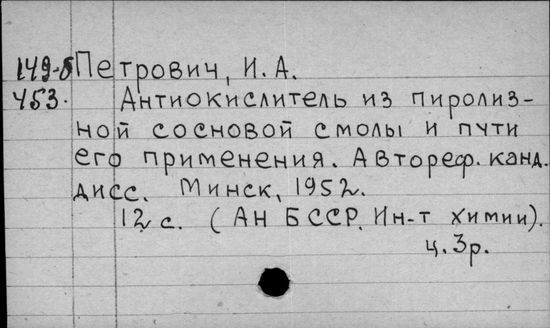 149-5 Петрович, И. А.
453. Антиокислитель из пиролиз-
ной сосновой смолы и пути
его применения. Автореф. канд.
дисс. Минск, 1952.
12 с. (АН БССР. Ин-т химии).
ц. 3р.